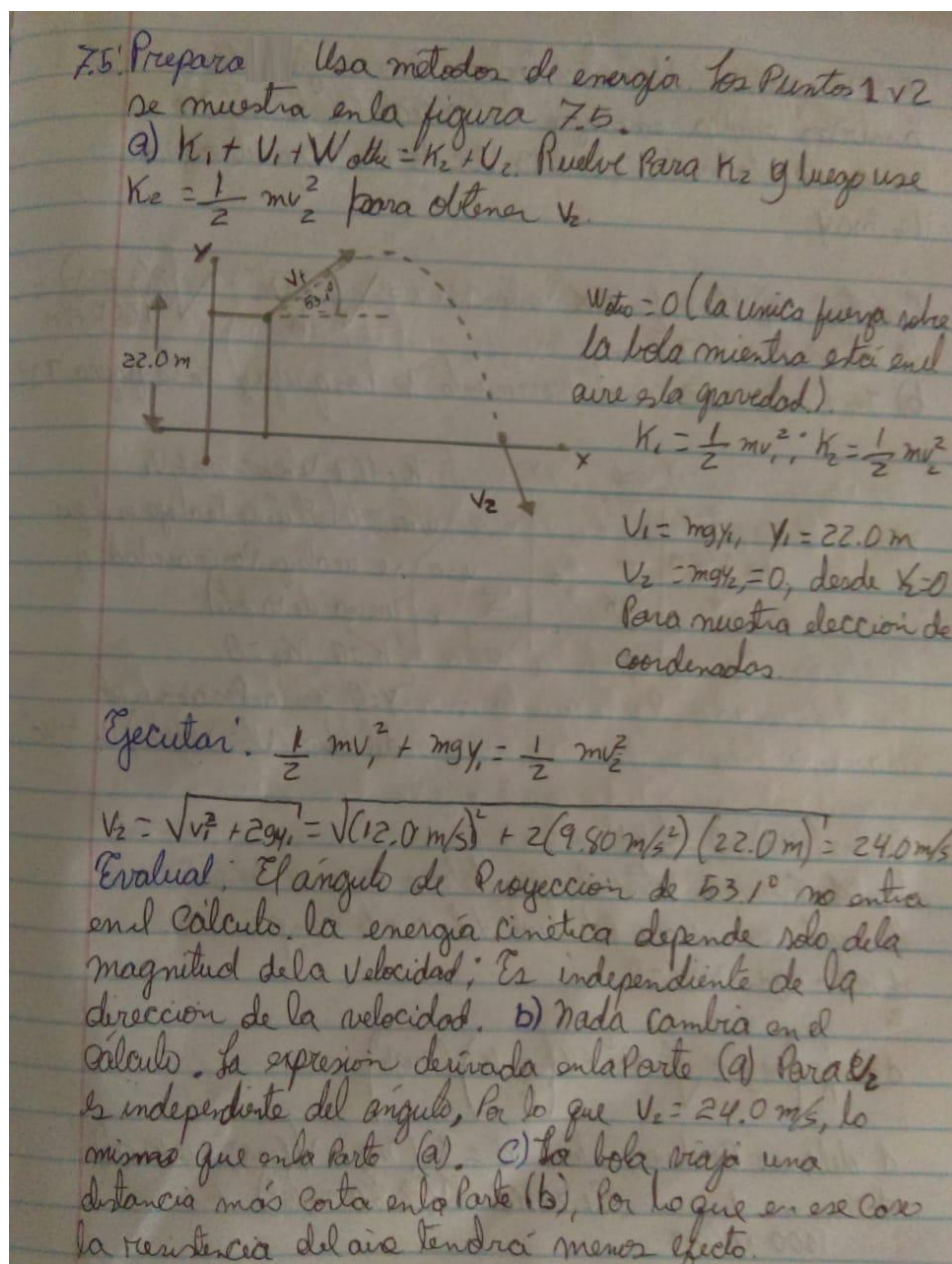 7.5: Prepara Usa métodos de energía. Los Puntos 1 y 2
se muestra en la figura 7.5.
a) K₁ + U₁ + Wothe = K₂ + U₂. Ruelve Para K₂ y luego use
K₂ = 1/2 mv₂² para obtener v₂.
Y
V₁
53.1°
22.0 m
x
V₂
Wotro = 0 (la unica fuerza sobre
la bola mientra está en el
aire es la gravedad).
K₁ = 1/2 mv₁²; K₂ = 1/2 mv₂²
U₁ = mgy₁, y₁ = 22.0 m
U₂ = mgy₂ = 0, desde Y₂=0
Para nuestra elección de
coordenadas.
Ejecutar: 1/2 mv₁² + mgy₁ = 1/2 mv₂²
V₂ = √(v₁² + 2gy₁) = √((12.0 m/s)² + 2(9.80 m/s²)(22.0 m)) = 24.0 m/s
Evalual: El ángulo de Proyección de 53.1° no entra
en el Cálculo. la energía cinética depende solo de la
magnitud de la Velocidad; Es independiente de la
dirección de la velocidad. b) Nada Cambia en el
Cálculo. La expresión derivada en la Parte (a) Para V₂
es independiente del ángulo, Por lo que V₂ = 24.0 m/s, lo
mismo que en la Parte (a). C) La bola viaja una
distancia más Corta en la Parte (b), Por lo que en ese Caso
la resistencia del aire tendrá menos efecto.